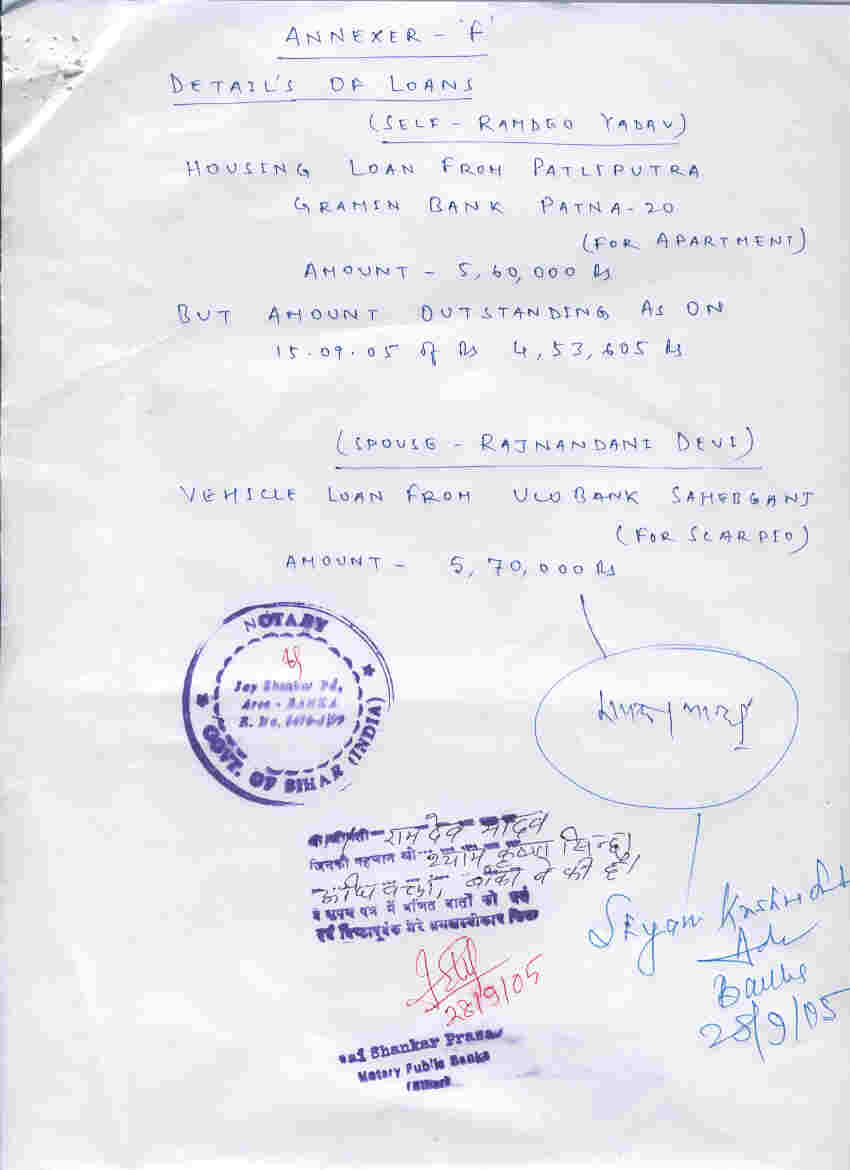 ANNEXER - 'F'
DETAIL'S OF LOANS
(SELF - RAMDEO YADAV)
HOUSING LOAN FROM PATLIPUTRA
GRAMIN BANK PATNA-20
(FOR APARTMENT)
AMOUNT - 5,60,000 Rs
BUT AMOUNT OUTSTANDING AS ON
15.09.05 of Rs 4,53,605 Rs
(SPOUSE - RAJNANDANI DEVI)
VEHICLE LOAN FROM UCO BANK SAHEBGANJ
(FOR SCARPIO)
AMOUNT - 5,70,000 Rs
NOTARY
Jay Shankar Pd,
Area - BANKA
GOVT. OF BIHAR (INDIA)
रामदेव यादव
जिनकी पहचान श्री श्याम कृष्ण सिन्हा
बांका ने की है।
ने शपथ पत्र में वर्णित बातों को
एवं निष्ठापूर्वक मेरे समक्ष स्वीकार किया
28/9/05
Shankar Prasad
Notary Public Banka
(Bihar)
Adv
Banka
28/9/05